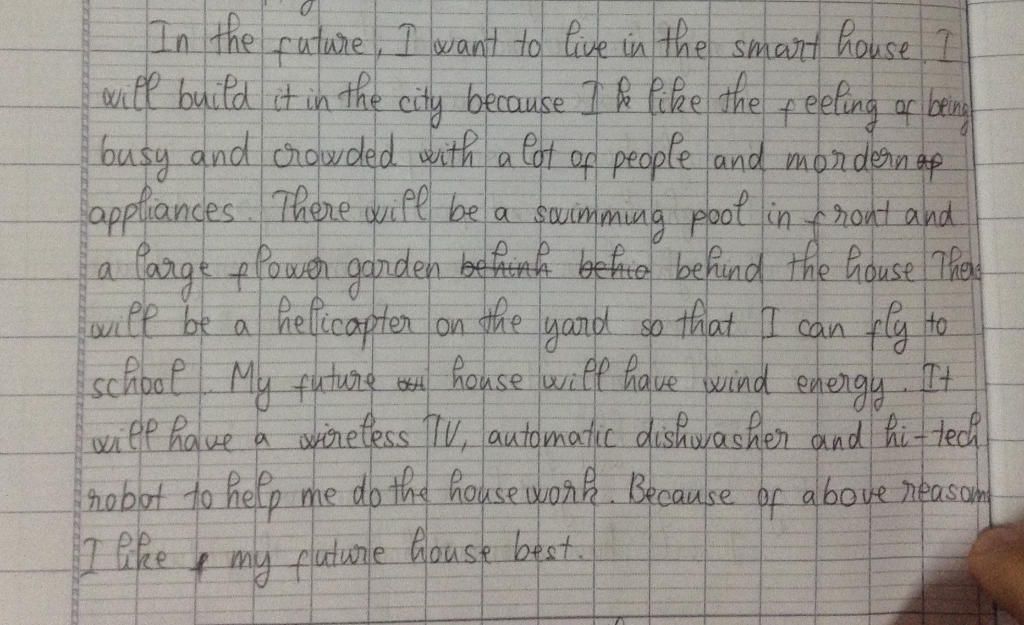 In the future, I want to live in the smart house. I
will build it in the city because I like the feeling of being
busy and crowded with a lot of people and mordern
appliances. There will be a swimming pool in front and
a large flower garden behind the house. There
will be a helicapter on the yard so that I can fly to
school. My future house will have wind energy. It
will have a wireless TV, automatic dishwasher and hi-tech
robot to help me do the housework. Because of above reasons
I like my future house best.